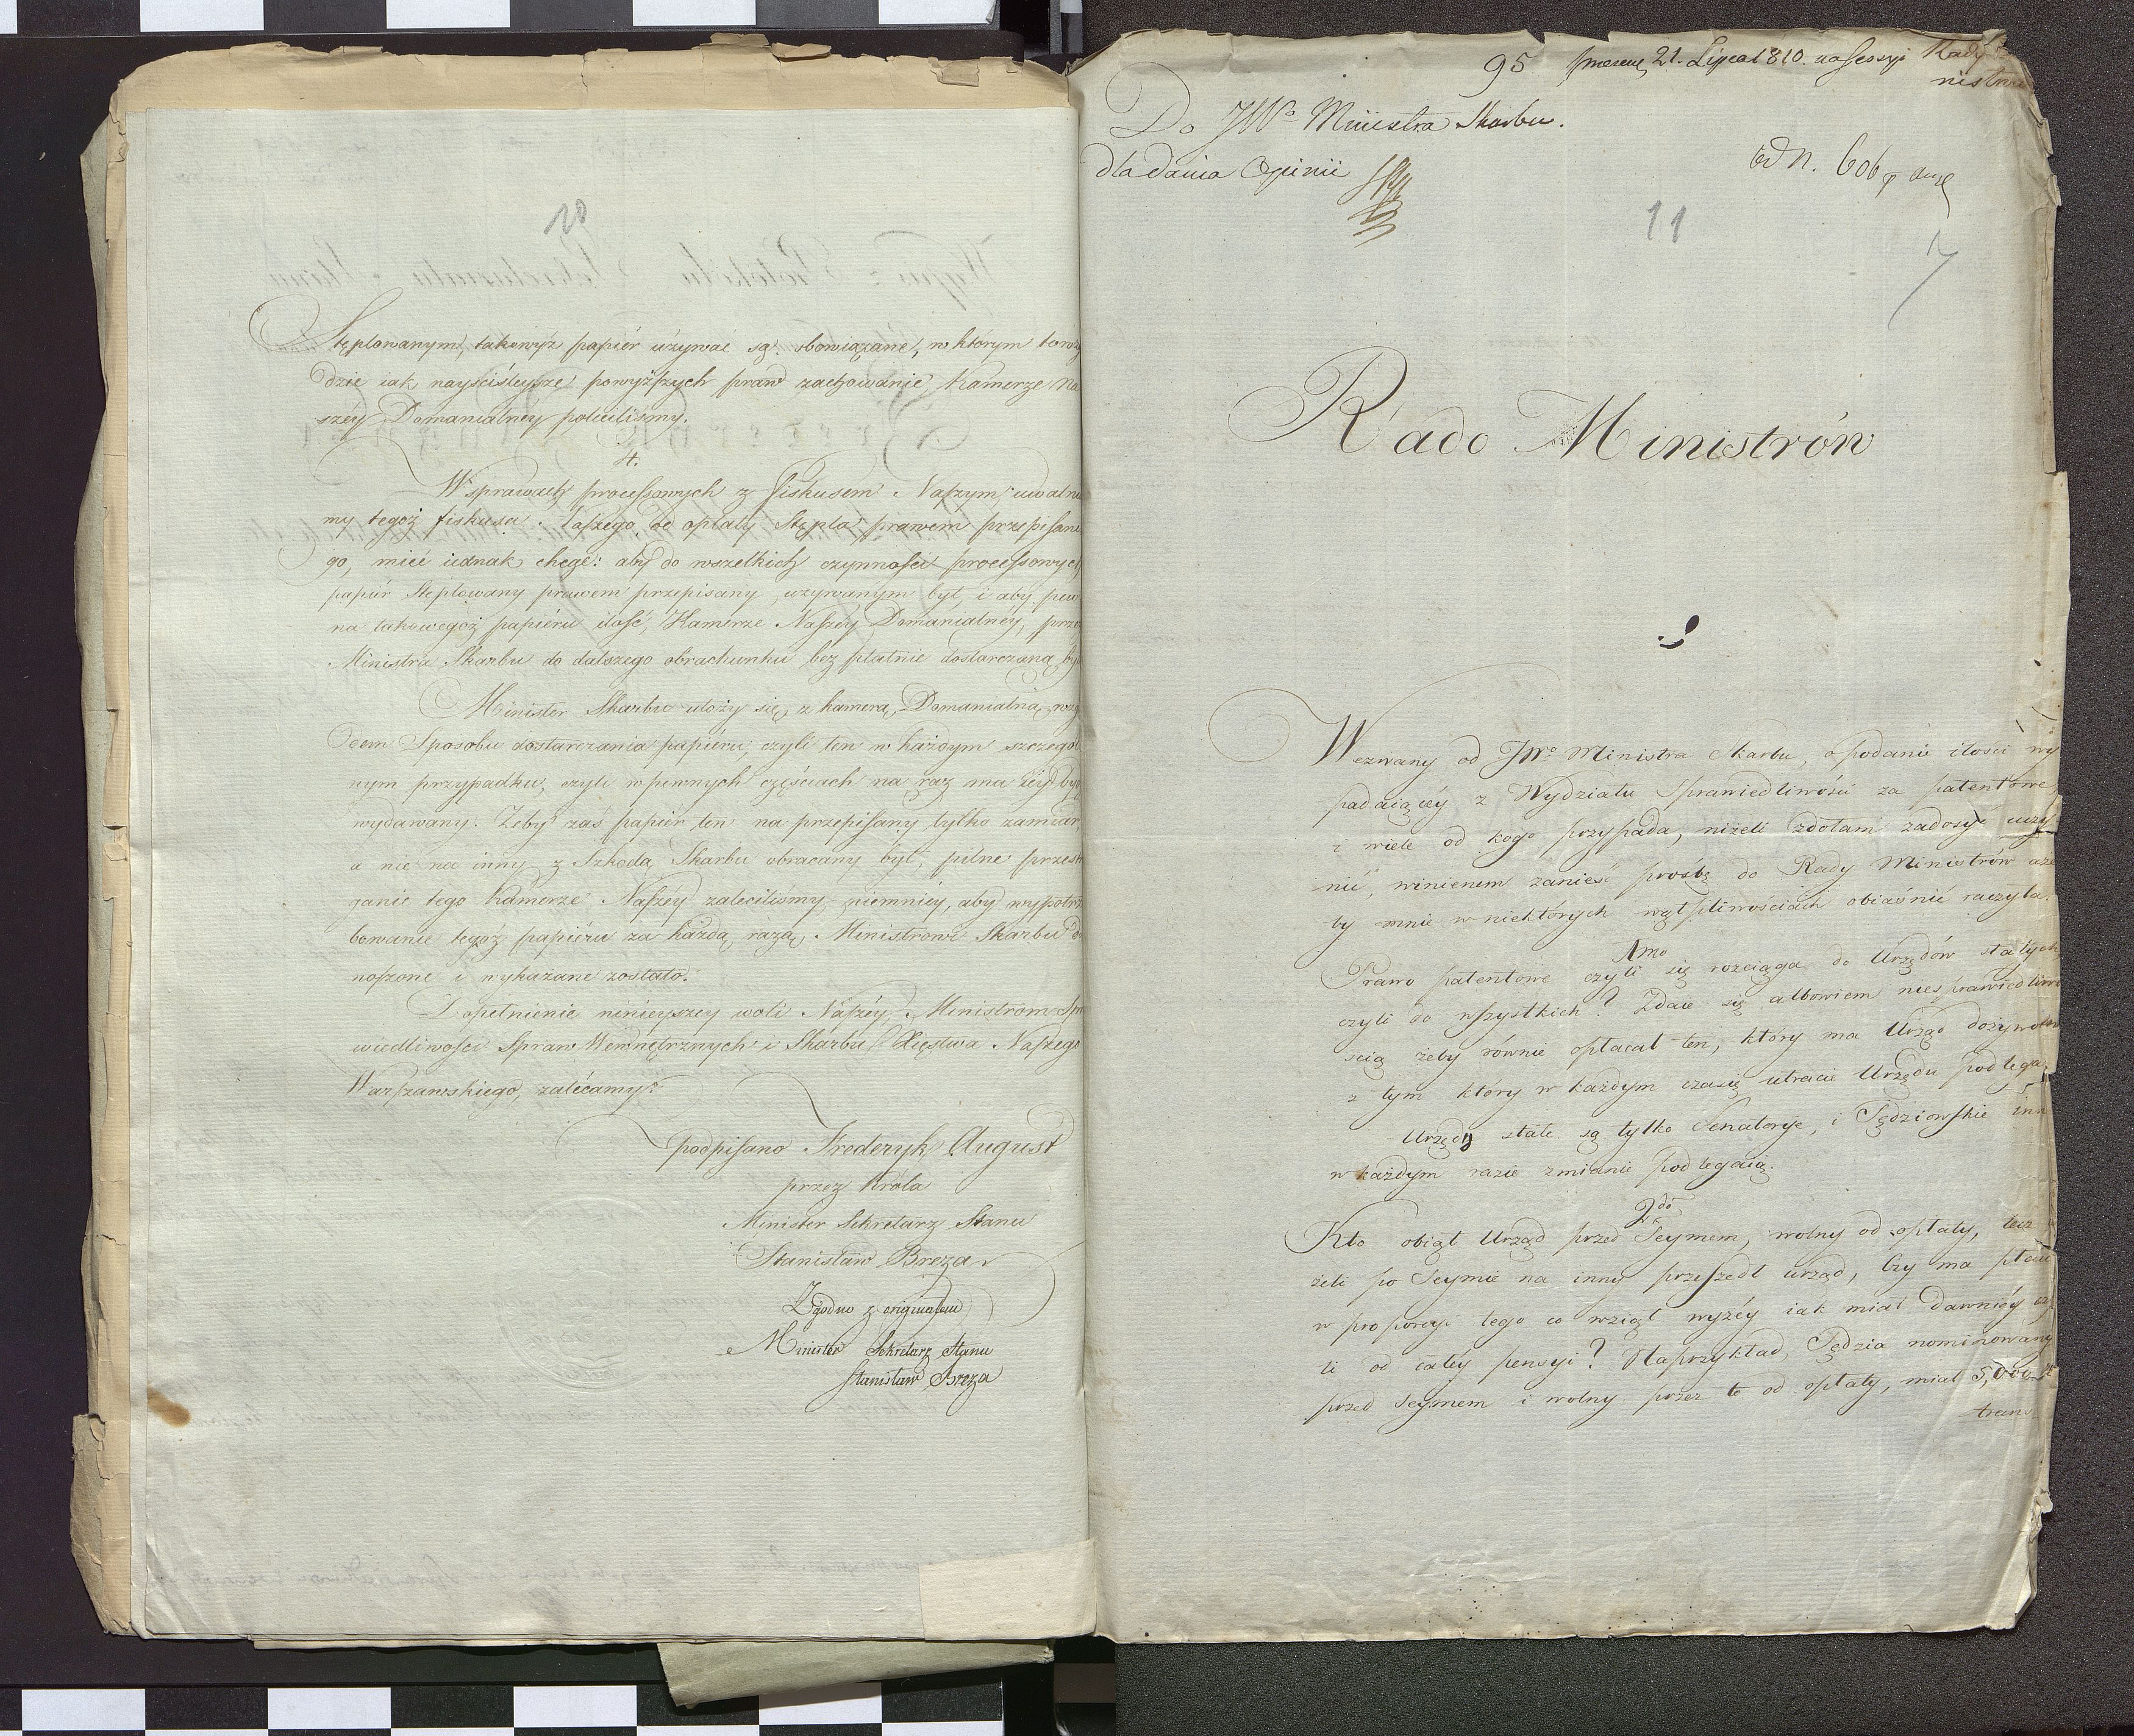 10
Stęplowanym, takowyż papiér używać są obowiązane, w którym wzglę
dzie iak nayściśleysze powyższych praw zachowanie, Kamerze Na
széy Domanialnéy poleciliśmy.
4.
W sprawach processowych z Fiskusem Naszym, uwalnia
my tegoż fiskusa Naszego od opłaty Stępla prawem przepisane
go, mieć iednak chcąc: aby do wszelkich czynności processowych
papiér Stęplowany prawem przepisany, używanym był, i aby pew
na takowegoż papiéru ilość, Kamerze Naszéy Domanialnéy, przez
Ministra Skarbu do dalszego obrachunku bez płatnie dostarczaną by
Minister Skarbu ułoży się z Kamerą Domanialną wzglę
dem Sposobu dostarczania papiéru, czyli ten w każdym szczegól
nym przypadku, czyli w pewnych częściach na raz ma iéy bydź
wydawany. Żeby zaś papiér ten na przepisany tylko zamiar,
a nie na inny z Szkodą Skarbu obracany był, pilne przestrze
ganie tego Kamerze Naszéy zaleciliśmy, niemniéy, aby wypotrze
bowanie tegoż papiéru za każdą razą Ministrowi Skarbu do
noszone i wykazane zostało.
Dopełnienie ninieyszey woli Naszéy, Ministrom Spra
wiedliwości Spraw Wewnętrznych i Skarbu Xięstwa Naszego
Warszawskiego, zalécamy.
podpisano Frederyk August
przez Króla
Minister Sekretarz Stanu
Stanisław Breza
Zgodno z originałem
Minister Sekretarz Stanu
Stanisław Breza
95 21. Lipca 1810. na sessyi Rady Mi
nistrów
Do JWo Ministra Skarbu.
dla dania Opinii
ad N. 606
11
7
Rada Ministrów
Wezwany od JWo Ministra Skarbu, o podanie ilości wy
padaiącéy z Wydziału Sprawiedliwości za patentowe,
i wiele od kogo przypada, niżeli zdołam zadosyć uczy
nić, winienem zanieść prośbę do Rady Ministrów aże
by mnie w niektórych wątpliwościach obiaśnić raczyła.
1mo
Prawo patentowe czyli się rozciąga do Urzędów stałych
czyli do wszystkich? Zdaie się albowiem niesprawiedliwo
ścią żeby równie opłacał ten, który ma Urząd dożywotni
z tym który w każdym czasie utracie Urzędu podlega.
Urzędy stałe są tylko Senatorye, i Sędziowskie inne
w każdym razie zmianie podlegaią.
2do
Kto obiął Urząd przed Seymem, wolny od opłaty, ieże
żeli po Seymie na inny przeszedł urząd, Czy ma płacić
w proporcyi tego co wziął wyżéy iak miał dawniéy czy
li od całéy pensyi? Naprzykład, Sędzia nominowany
przed Seymem i wolny przez to od opłaty, miał 5,000